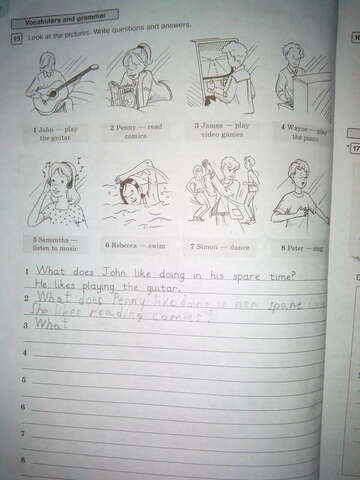 Vocabulary and grammar
15 Look at the pictures. Write questions and answers.
1 John — play
the guitar
2 Penny — read
comics
3 James — play
video games
4 Wayne — play
the piano
5 Samantha —
listen to music
6 Rebecca — swim
7 Simon — dance
8 Peter — sing
1 What does John like doing in his spare time?
He likes playing the guitar.
2 What does Penny like doing in her spare
She likes reading comics.
3 What
4
5
6
7
8
17